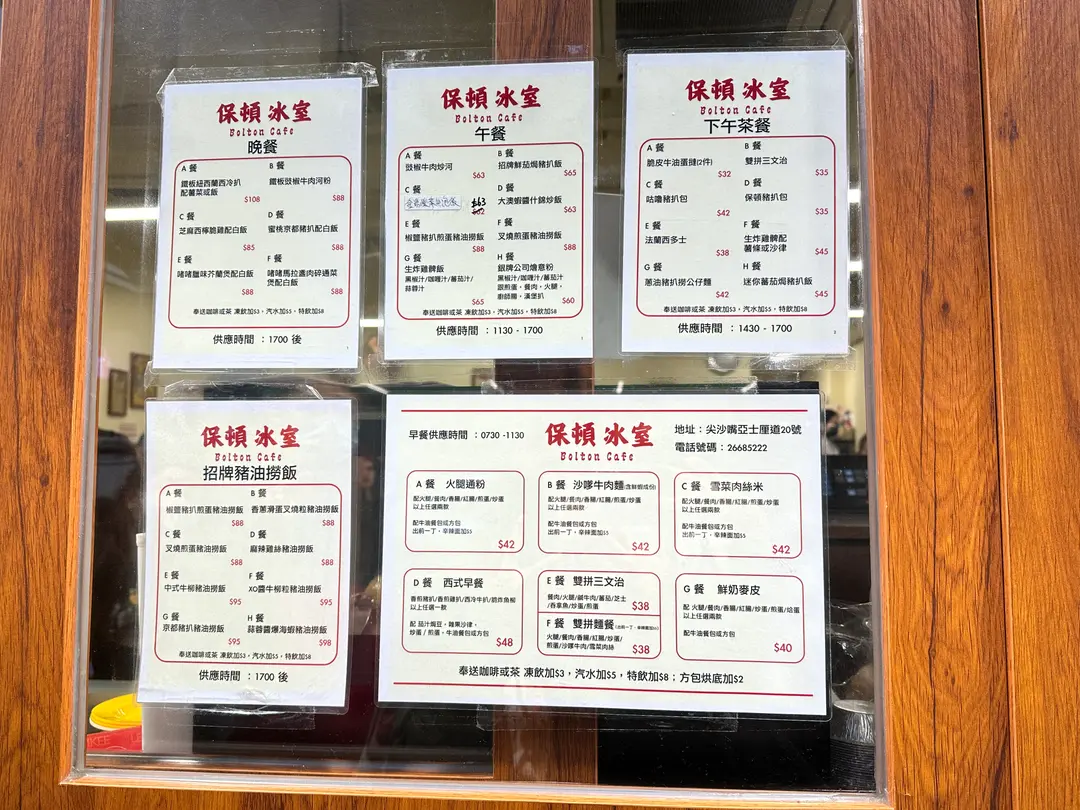 保頓冰室
Bolton Cafe
晚餐
A 餐
鐵板紐西蘭西冷扒
配薯菜或飯
$108
B 餐
鐵板豉椒牛肉河粉
$88
C 餐
芝麻西檸脆雞配白飯
$85
D 餐
蜜桃京都豬扒配白飯
$88
E 餐
啫啫臘味芥蘭煲配白飯
$88
F 餐
啫啫馬拉盞肉碎通菜
煲配白飯
$88
奉送咖啡或茶 凍飲加$3，汽水加$5，特飲加$8
供應時間 ：1700 後
保頓冰室
Bolton Cafe
午餐
A 餐
豉椒牛肉炒河
$63
B 餐
招牌鮮茄焗豬扒飯
$65
C 餐
$63
D 餐
大澳蝦醬什錦炒飯
$63
E 餐
椒鹽豬扒煎蛋豬油撈飯
$88
F 餐
叉燒煎蛋豬油撈飯
$88
G 餐
生炸雞髀飯
黑椒汁/咖喱汁/蕃茄汁/
蒜蓉汁
$65
H 餐
銀牌公司燴意粉
黑椒汁/咖喱汁/蕃茄汁
跟煎蛋，餐肉，火腿，
廚師腸，漢堡扒
$60
奉送咖啡或茶 凍飲加$3，汽水加$5，特飲加$8
供應時間 ：1130 - 1700
保頓冰室
Bolton Cafe
下午茶餐
A 餐
脆皮牛油蛋撻(2件)
$32
B 餐
雙拼三文治
$35
C 餐
咕嚕豬扒包
$42
D 餐
保頓豬扒包
$35
E 餐
法蘭西多士
$38
F 餐
生炸雞髀配
薯條或沙律
$45
G 餐
蔥油豬扒撈公仔麵
$42
H 餐
迷你蕃茄焗豬扒飯
$45
奉送咖啡或茶 凍飲加$3，汽水加$5，特飲加$8
供應時間 ：1430 - 1700
保頓冰室
Bolton Cafe
招牌豬油撈飯
A 餐
椒鹽豬扒煎蛋豬油撈飯
$88
B 餐
香蔥滑蛋叉燒粒豬油撈飯
$88
C 餐
叉燒煎蛋豬油撈飯
$88
D 餐
麻辣雞絲豬油撈飯
$88
E 餐
中式牛柳豬油撈飯
$95
F 餐
XO醬牛柳粒豬油撈飯
$95
G 餐
京都豬扒豬油撈飯
$95
H 餐
蒜蓉醬爆海蝦豬油撈飯
$98
奉送咖啡或茶 凍飲加$3，汽水加$5，特飲加$8
供應時間 ：1700 後
早餐供應時間 ：0730 -1130
保頓冰室
Bolton Cafe
地址：尖沙嘴亞士厘道20號
電話號碼：26685222
A 餐 火腿通粉
配火腿/餐肉/香腸/紅腸/煎蛋/炒蛋
以上任選兩款
配牛油餐包或方包
出前一丁，辛辣面加$5
$42
B 餐 沙嗲牛肉麵(含鮮蝦成份)
配火腿/餐肉/香腸/紅腸/煎蛋/炒蛋
以上任選兩款
配牛油餐包或方包
出前一丁，辛辣面加$5
$42
C 餐 雪菜肉絲米
配火腿/餐肉/香腸/紅腸/煎蛋/炒蛋
以上任選兩款
配牛油餐包或方包
出前一丁，辛辣面加$5
$42
D 餐 西式早餐
香煎豬扒/香煎雞扒/西冷牛扒/脆炸魚柳
以上任選一款
配 茄汁焗豆，雜果沙律，
炒蛋 / 煎蛋，牛油餐包或方包
$48
E 餐 雙拼三文治
餐肉/火腿/鹹牛肉/蕃茄/芝士
/吞拿魚/炒蛋/煎蛋
$38
F 餐 雙拼麵餐(出前一丁，辛辣面加$5)
火腿/餐肉/香腸/紅腸/炒蛋/
煎蛋/沙嗲牛肉/雪菜肉絲
$38
G 餐 鮮奶麥皮
配 火腿/餐肉/香腸/紅腸/炒蛋/煎蛋/烚蛋
以上任選兩款
配牛油餐包或方包
$40
奉送咖啡或茶 凍飲加$3，汽水加$5，特飲加$8；方包烘底加$2